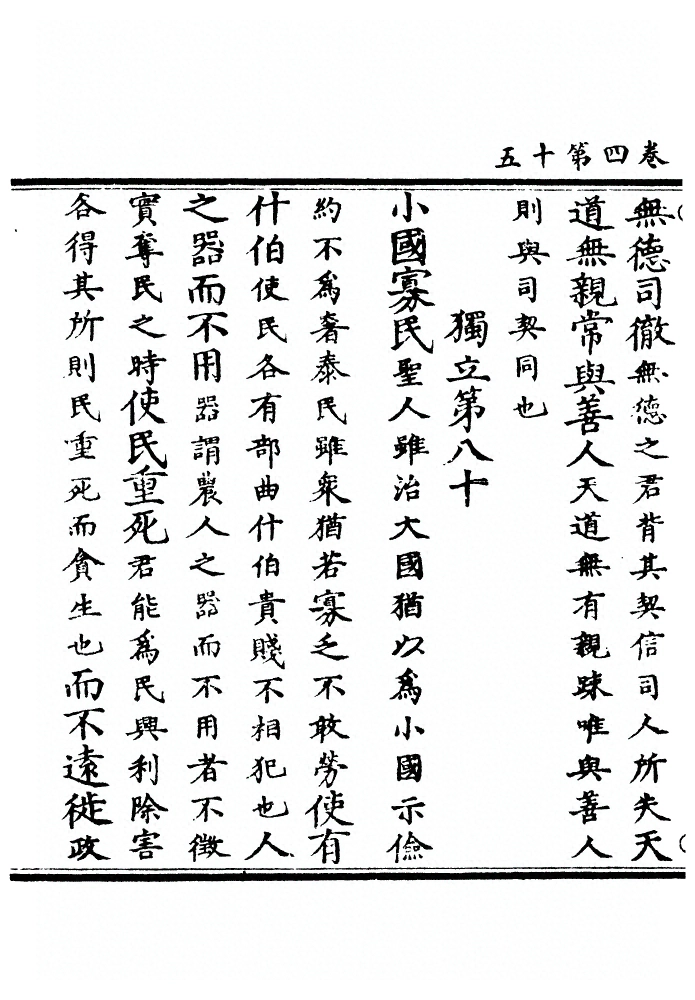 卷四第十五
無德司徹無德之君背其契信司人所失天
道無親常與善人天道無有親踈唯與善人
則與司契同也
獨立第八十
小國寡民聖人雖治大國猶以為小國示儉
約不為奢泰民雖衆猶若寡乏不敢勞使有
什伯使民各有部曲什伯貴賤不相犯也人
之器而不用器謂農人之器而不用者不徵
實奪民之時使民重死君能為民興利除害
各得其所則民重死而貪生也而不遠徙政